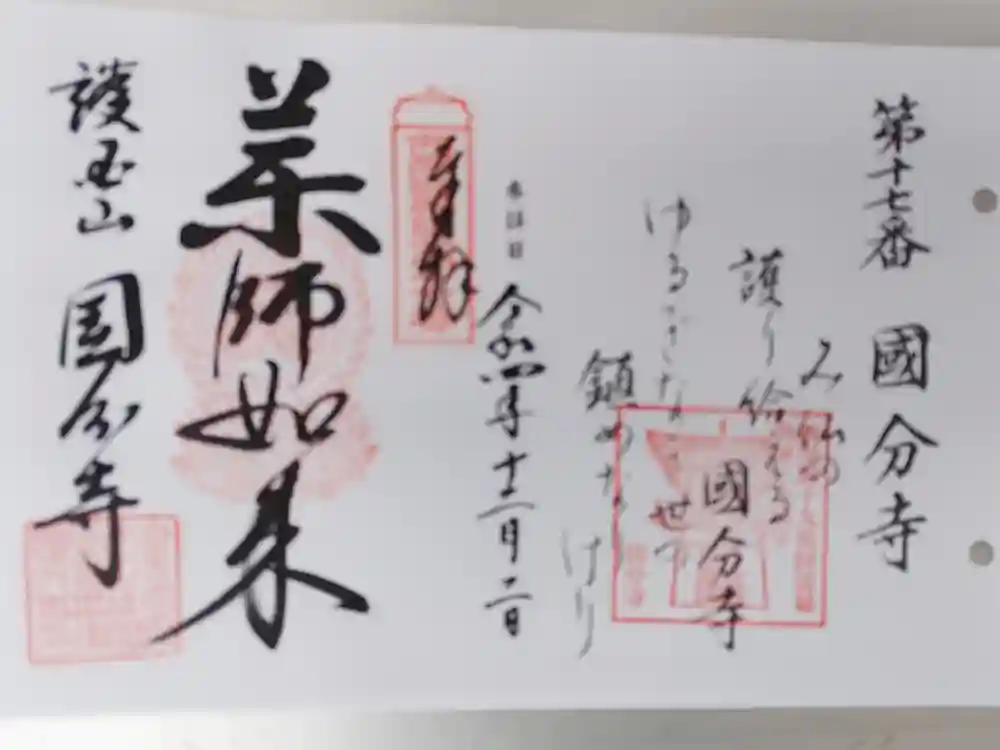 第十七番 國分寺
み仏の
護り給える
國分寺
ゆるぎなき世の
鎮めなり
けり
令和四年十二月二日
奉拝
薬師如来
護国山 国分寺